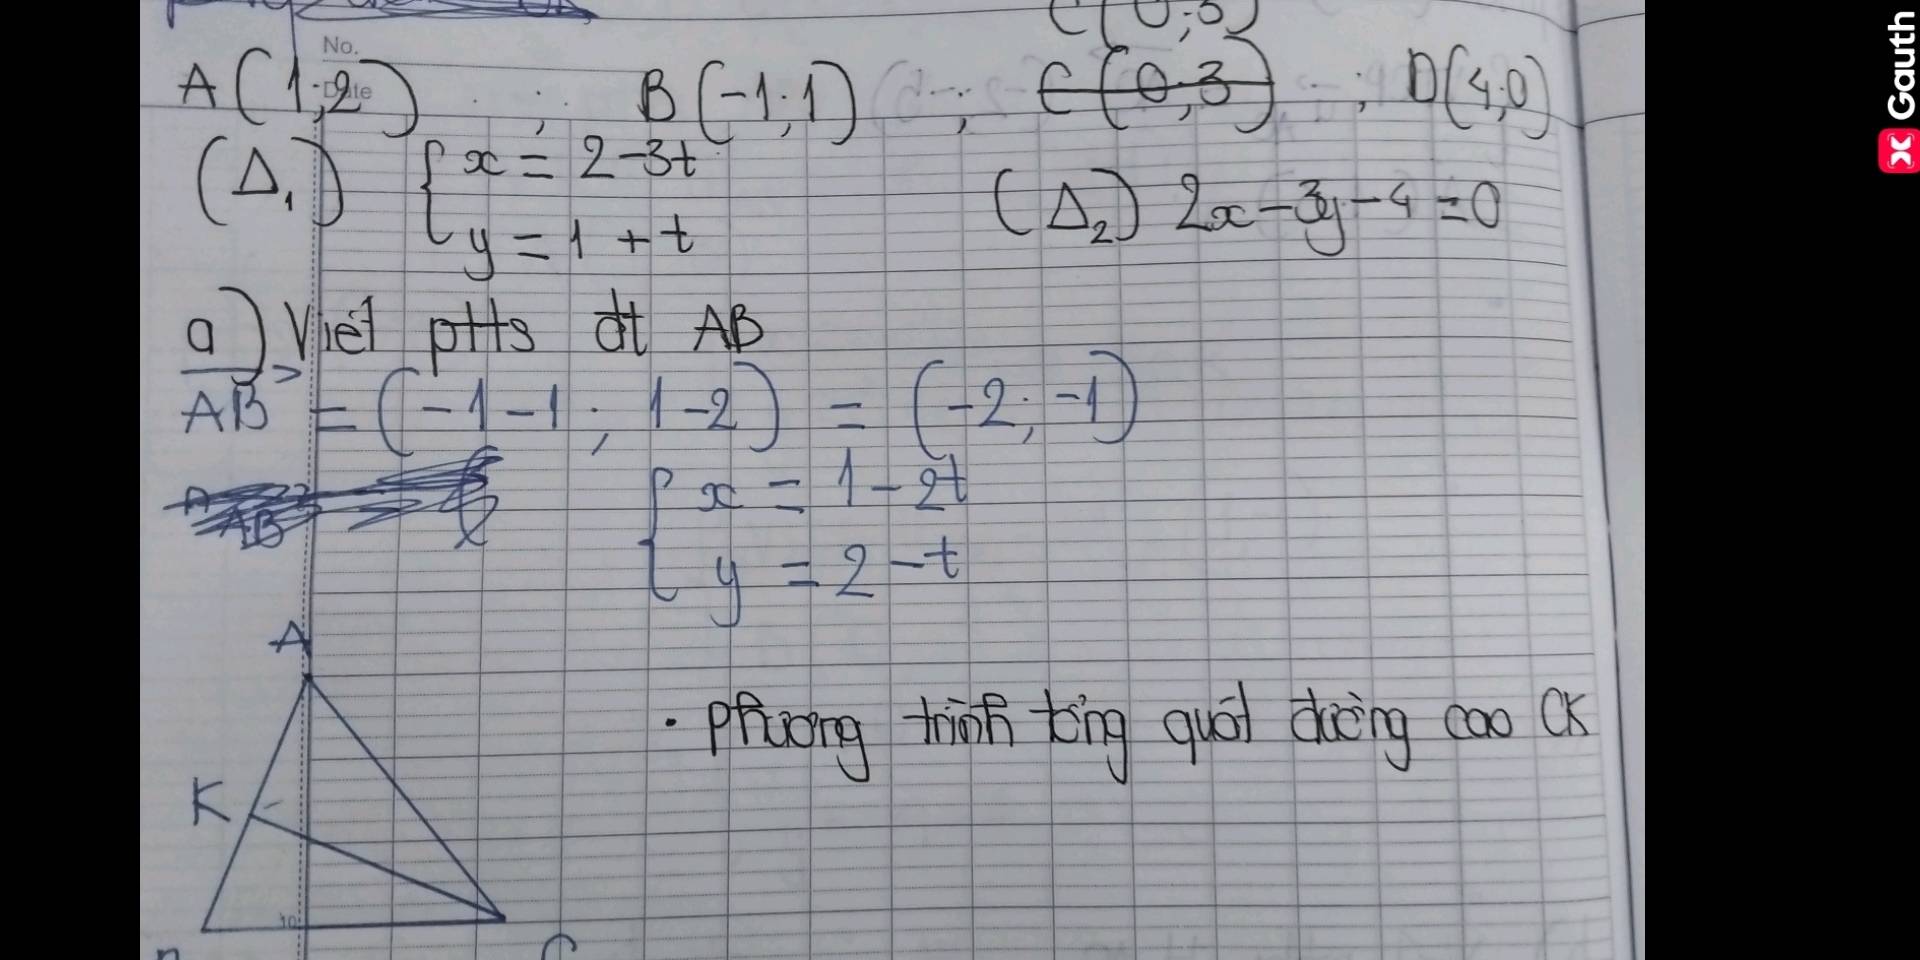 C(0;3)
No.
Date
A(1;2) ; B(-1;1) ; C(0;3) ; D(4;0)
(Δ₁) { x = 2-3t
y = 1 + t
(Δ₂) 2x-3y-4=0
a) Viết ptts đt AB
AB = (-1-1; 1-2) = (-2; -1)
AB
{ x = 1-2t
y = 2-t
A
• phương trình tổng quát đường cao CK
K
10
C
Gauth